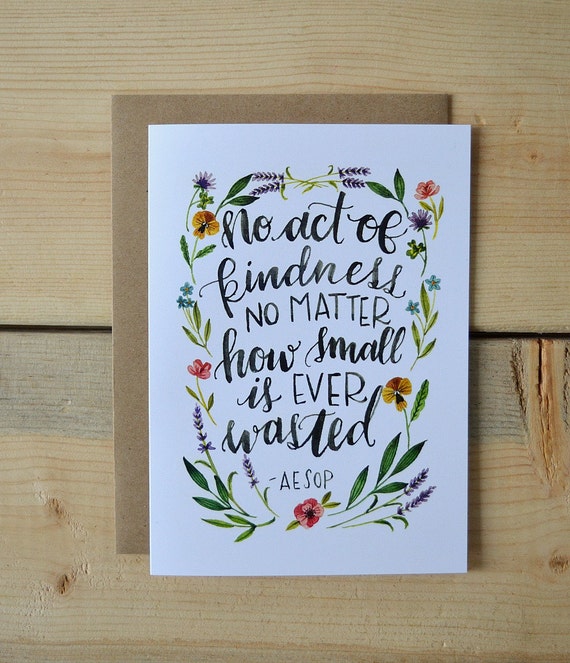 No act of
kindness,
NO MATTER
how small
is EVER
wasted
-AESOP